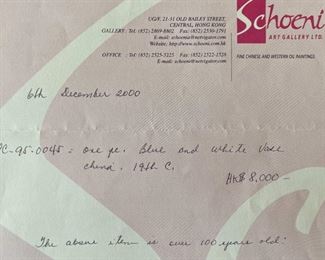 UG/F, 21-31 OLD BAILEY STREET,
CENTRAL, HONG KONG
GALLERY : Tel: (852) 2869-8802 Fax: (852) 2530-1791
E-mail: schoeni@netvigator.com
Website: http://www.schoeni.com.hk
OFFICE : Tel: (852) 2525-5225 Fax: (852) 2522-1528
E-mail: schoenia@netvigator.com
Schoeni
ART GALLERY LTD.
FINE CHINESE AND WESTERN OIL PAINTINGS
6th December 2000
PC-95.0045 = one pc. Blue and White Vase
China. 19th C.
HK$ 8,000 -
The above item is over 100 years old.